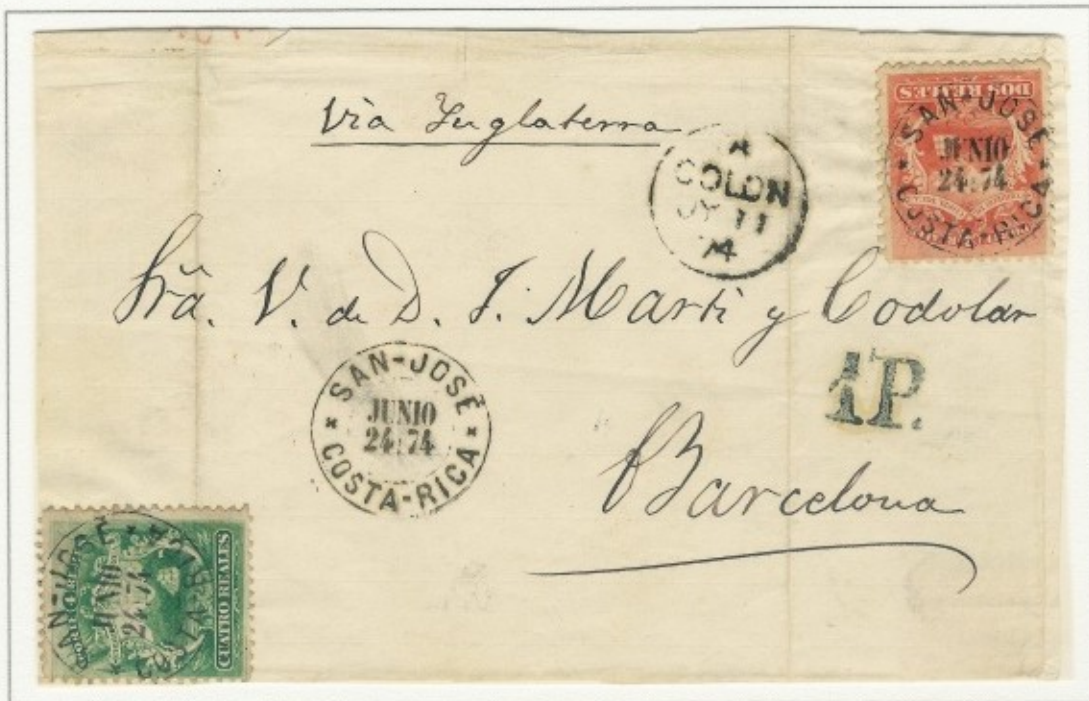 Via Inglaterra
DOS REALES
SAN-JOSÉ
JUNIO
24.74
COSTA-RICA
A
COLON
JY 11
74
Sra. V. de D. J. Marti y Codolar
SAN-JOSÉ
JUNIO
24.74
COSTA-RICA
1P.
Barcelona
SAN-JOSÉ
JUNIO
24.74
COSTA-RICA
CUATRO REALES